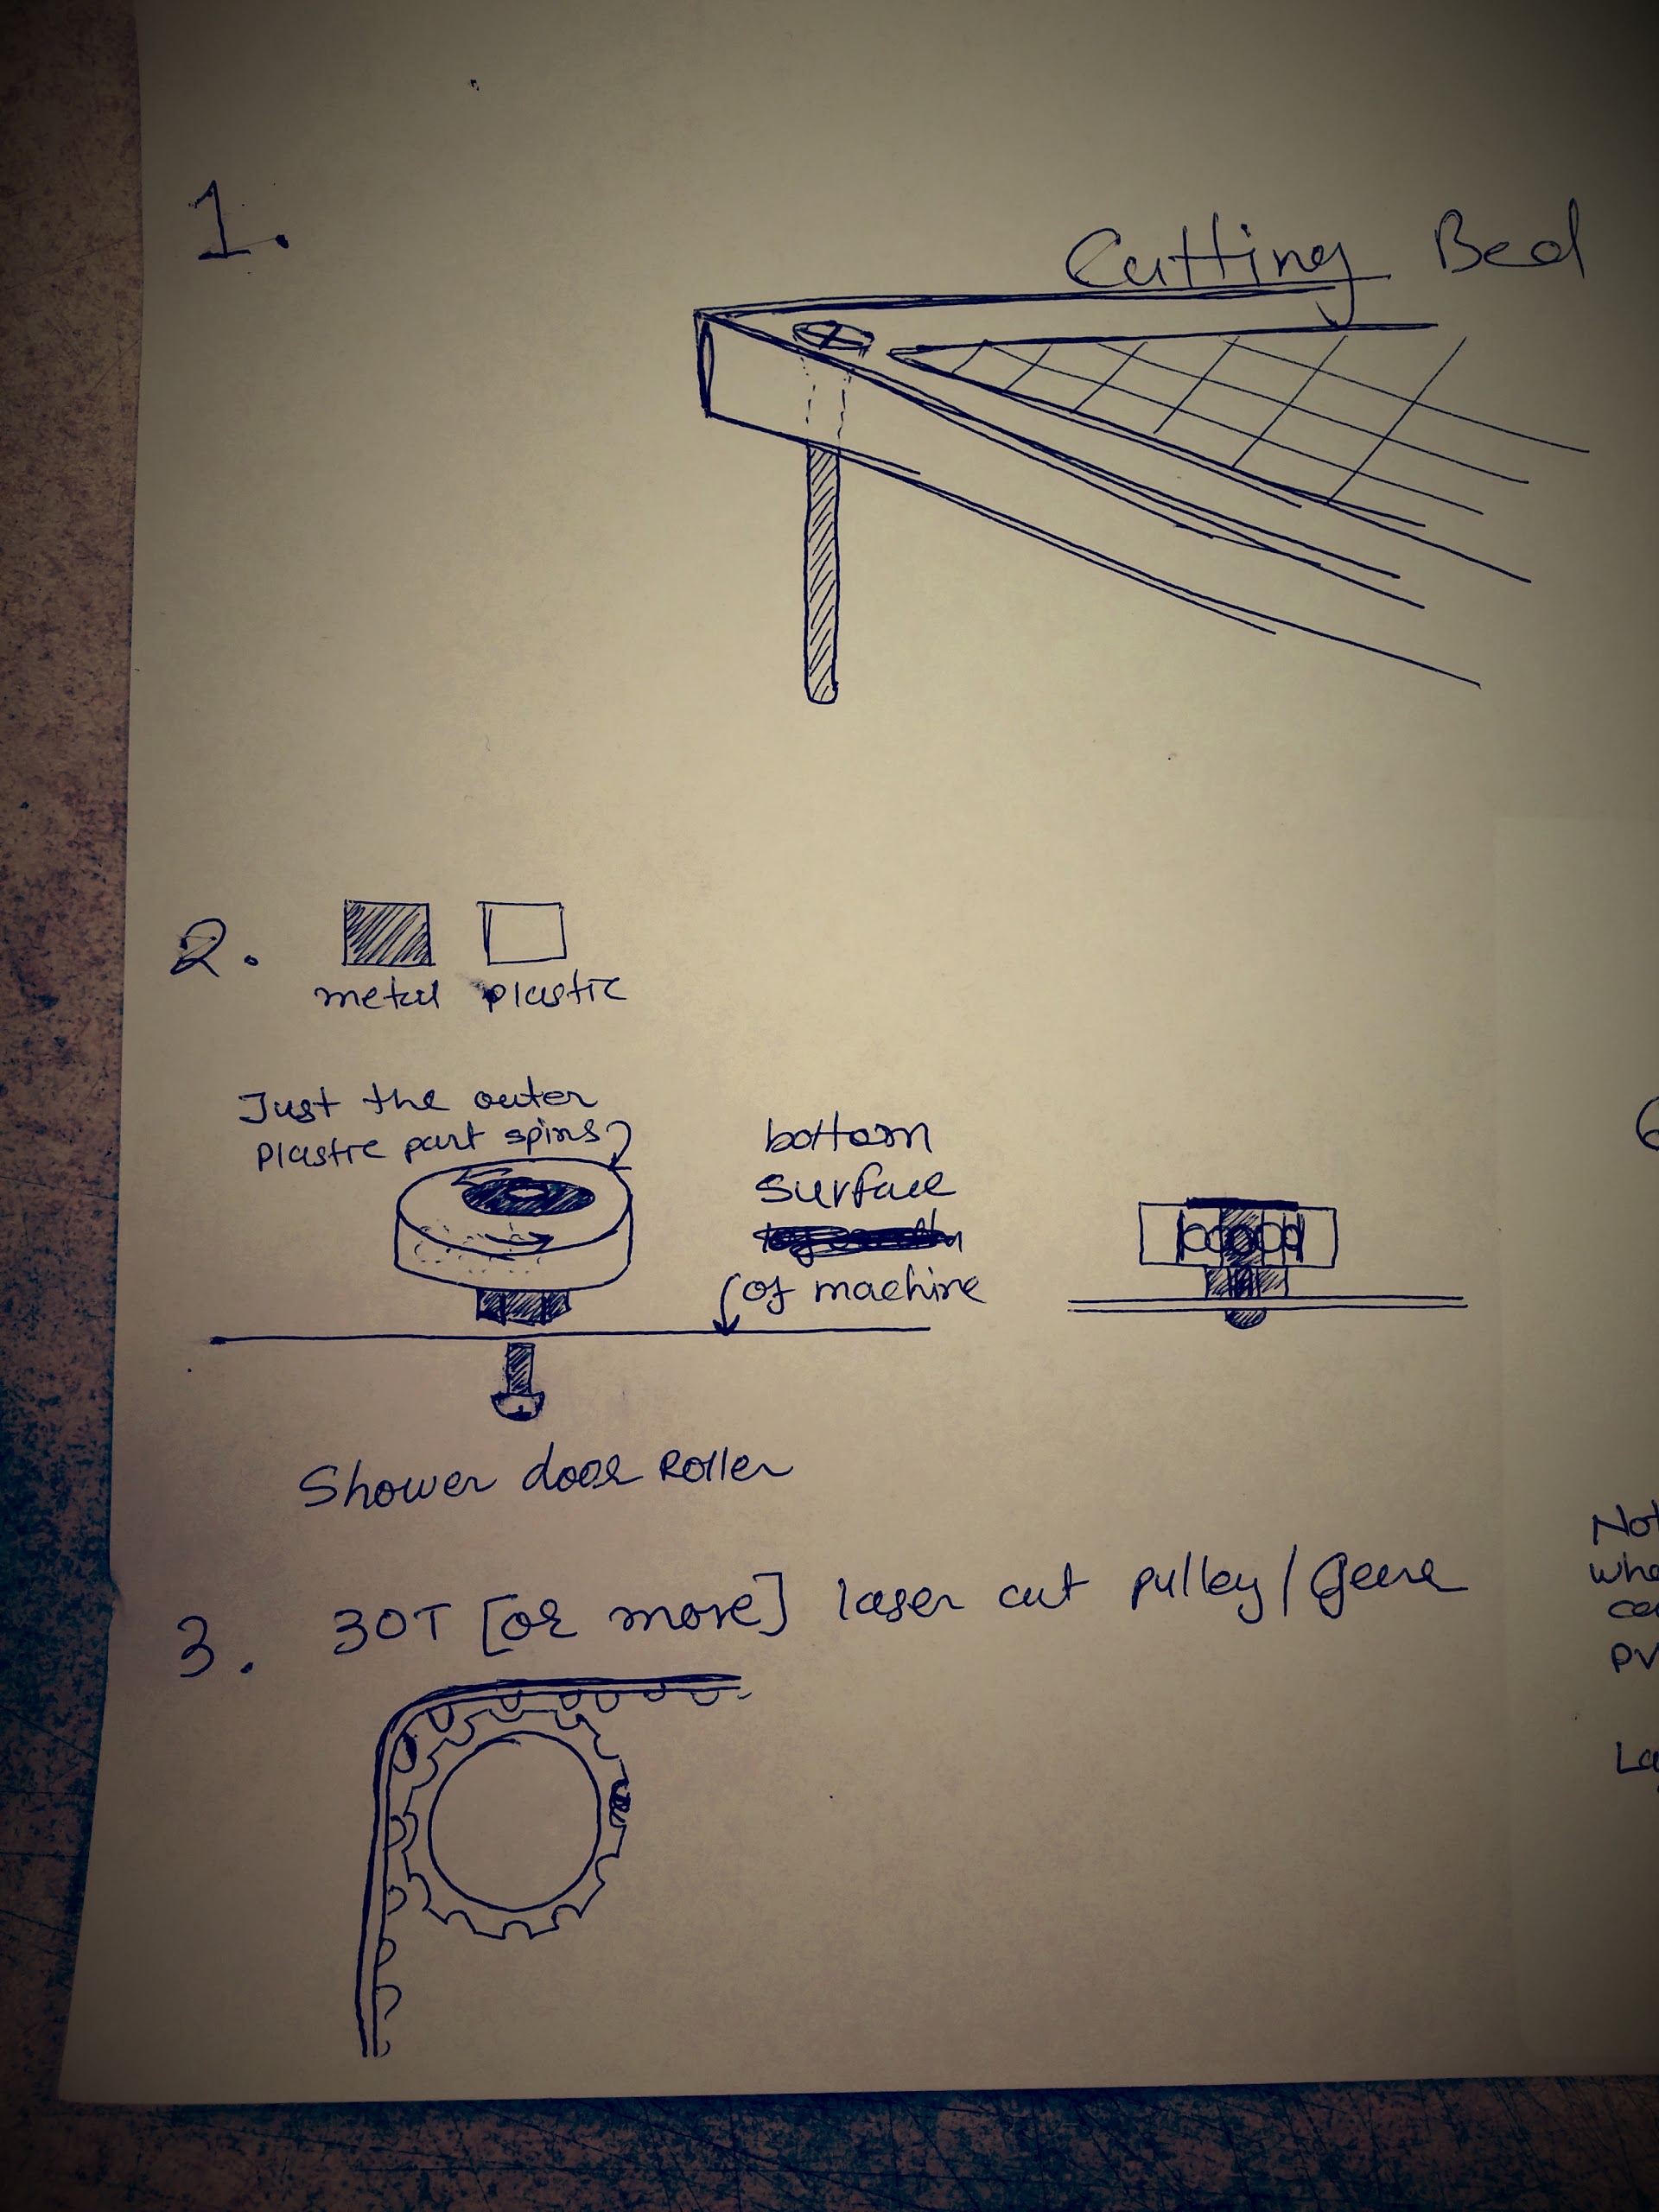 1.
Cutting Bed
2.
metal plastic
Just the outer
plastic part spins
bottom
surface
of machine
Shower door Roller
3. 30T [or more] laser cut pulley/Gear
Not
whe
PV